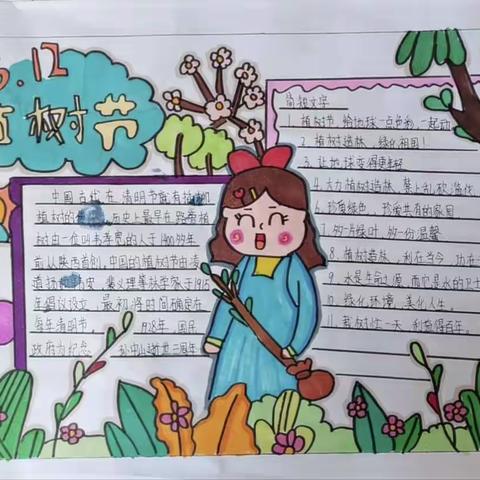 3.12
植树节
中国古代在清明节就有插柳
植树的 历史上最早在路旁植
树由一位叫韦孝宽的人于1400多年
前从陕西首创。中国的植树节由凌
道扬 裴义理等林学家于1915
年倡议设立，最初将时间确定在
每年清明节。 1928年，国民
政府为纪念 孙中山逝世三周年
简短文字
1. 植树节，给地球一点色彩，一起动
2. 植树造林，绿化祖国！
3. 让地球变得更年轻
4. 大力植树造林，禁止乱砍滥伐
6. 珍爱绿色，珍爱共有的家园
7. 多一片绿叶，多一份温馨
8. 植树造林，利在当今，功在
9. 水是生命之源，而它是水的卫士
10. 绿化环境，美化人生。
11. 栽树忙一天，利益得百年。